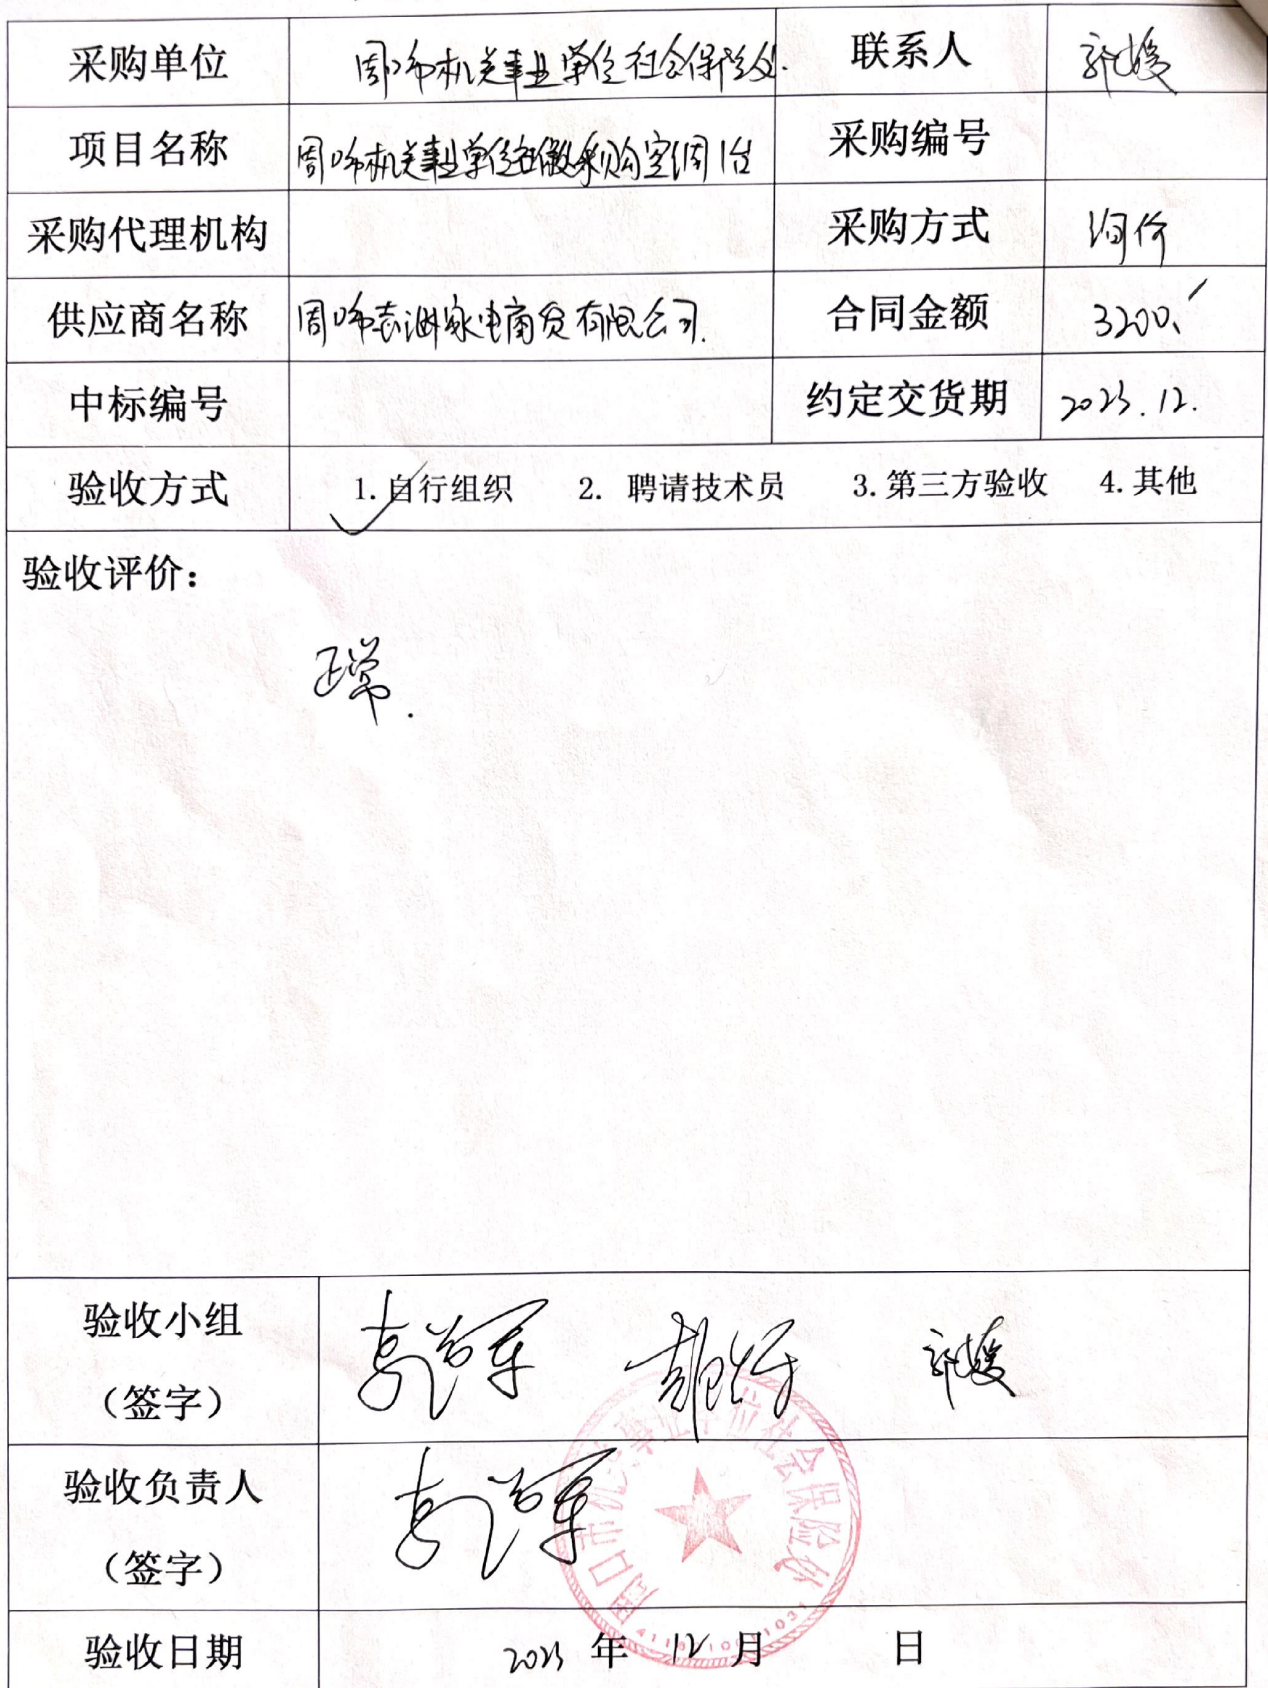 采购单位 周口市机关事业单位社会保险处. 联系人 郭媛
项目名称 周口市机关事业单位社保采购空调1台 采购编号
采购代理机构 采购方式 询价
供应商名称 周口市志洲家电商贸有限公司. 合同金额 3200.
中标编号 约定交货期 2023.12.
验收方式 1.自行组织 2. 聘请技术员 3.第三方验收 4.其他
验收评价：
正常.
验收小组
（签字） 郭媛
验收负责人
（签字）
周口市机关事业单位社会保险处
验收日期 2023 年 12 月 日